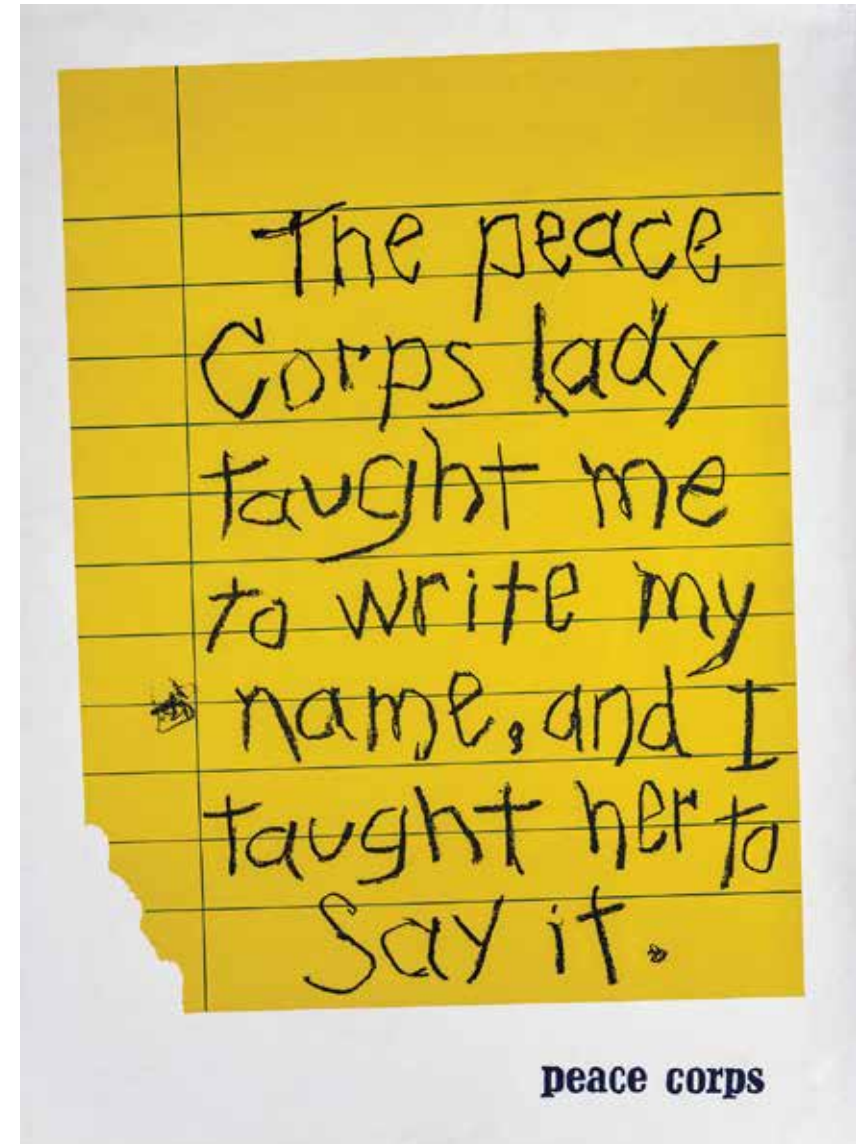 The peace
Corps lady
taught me
to write my
name, and I
taught her to
Say it.
peace corps